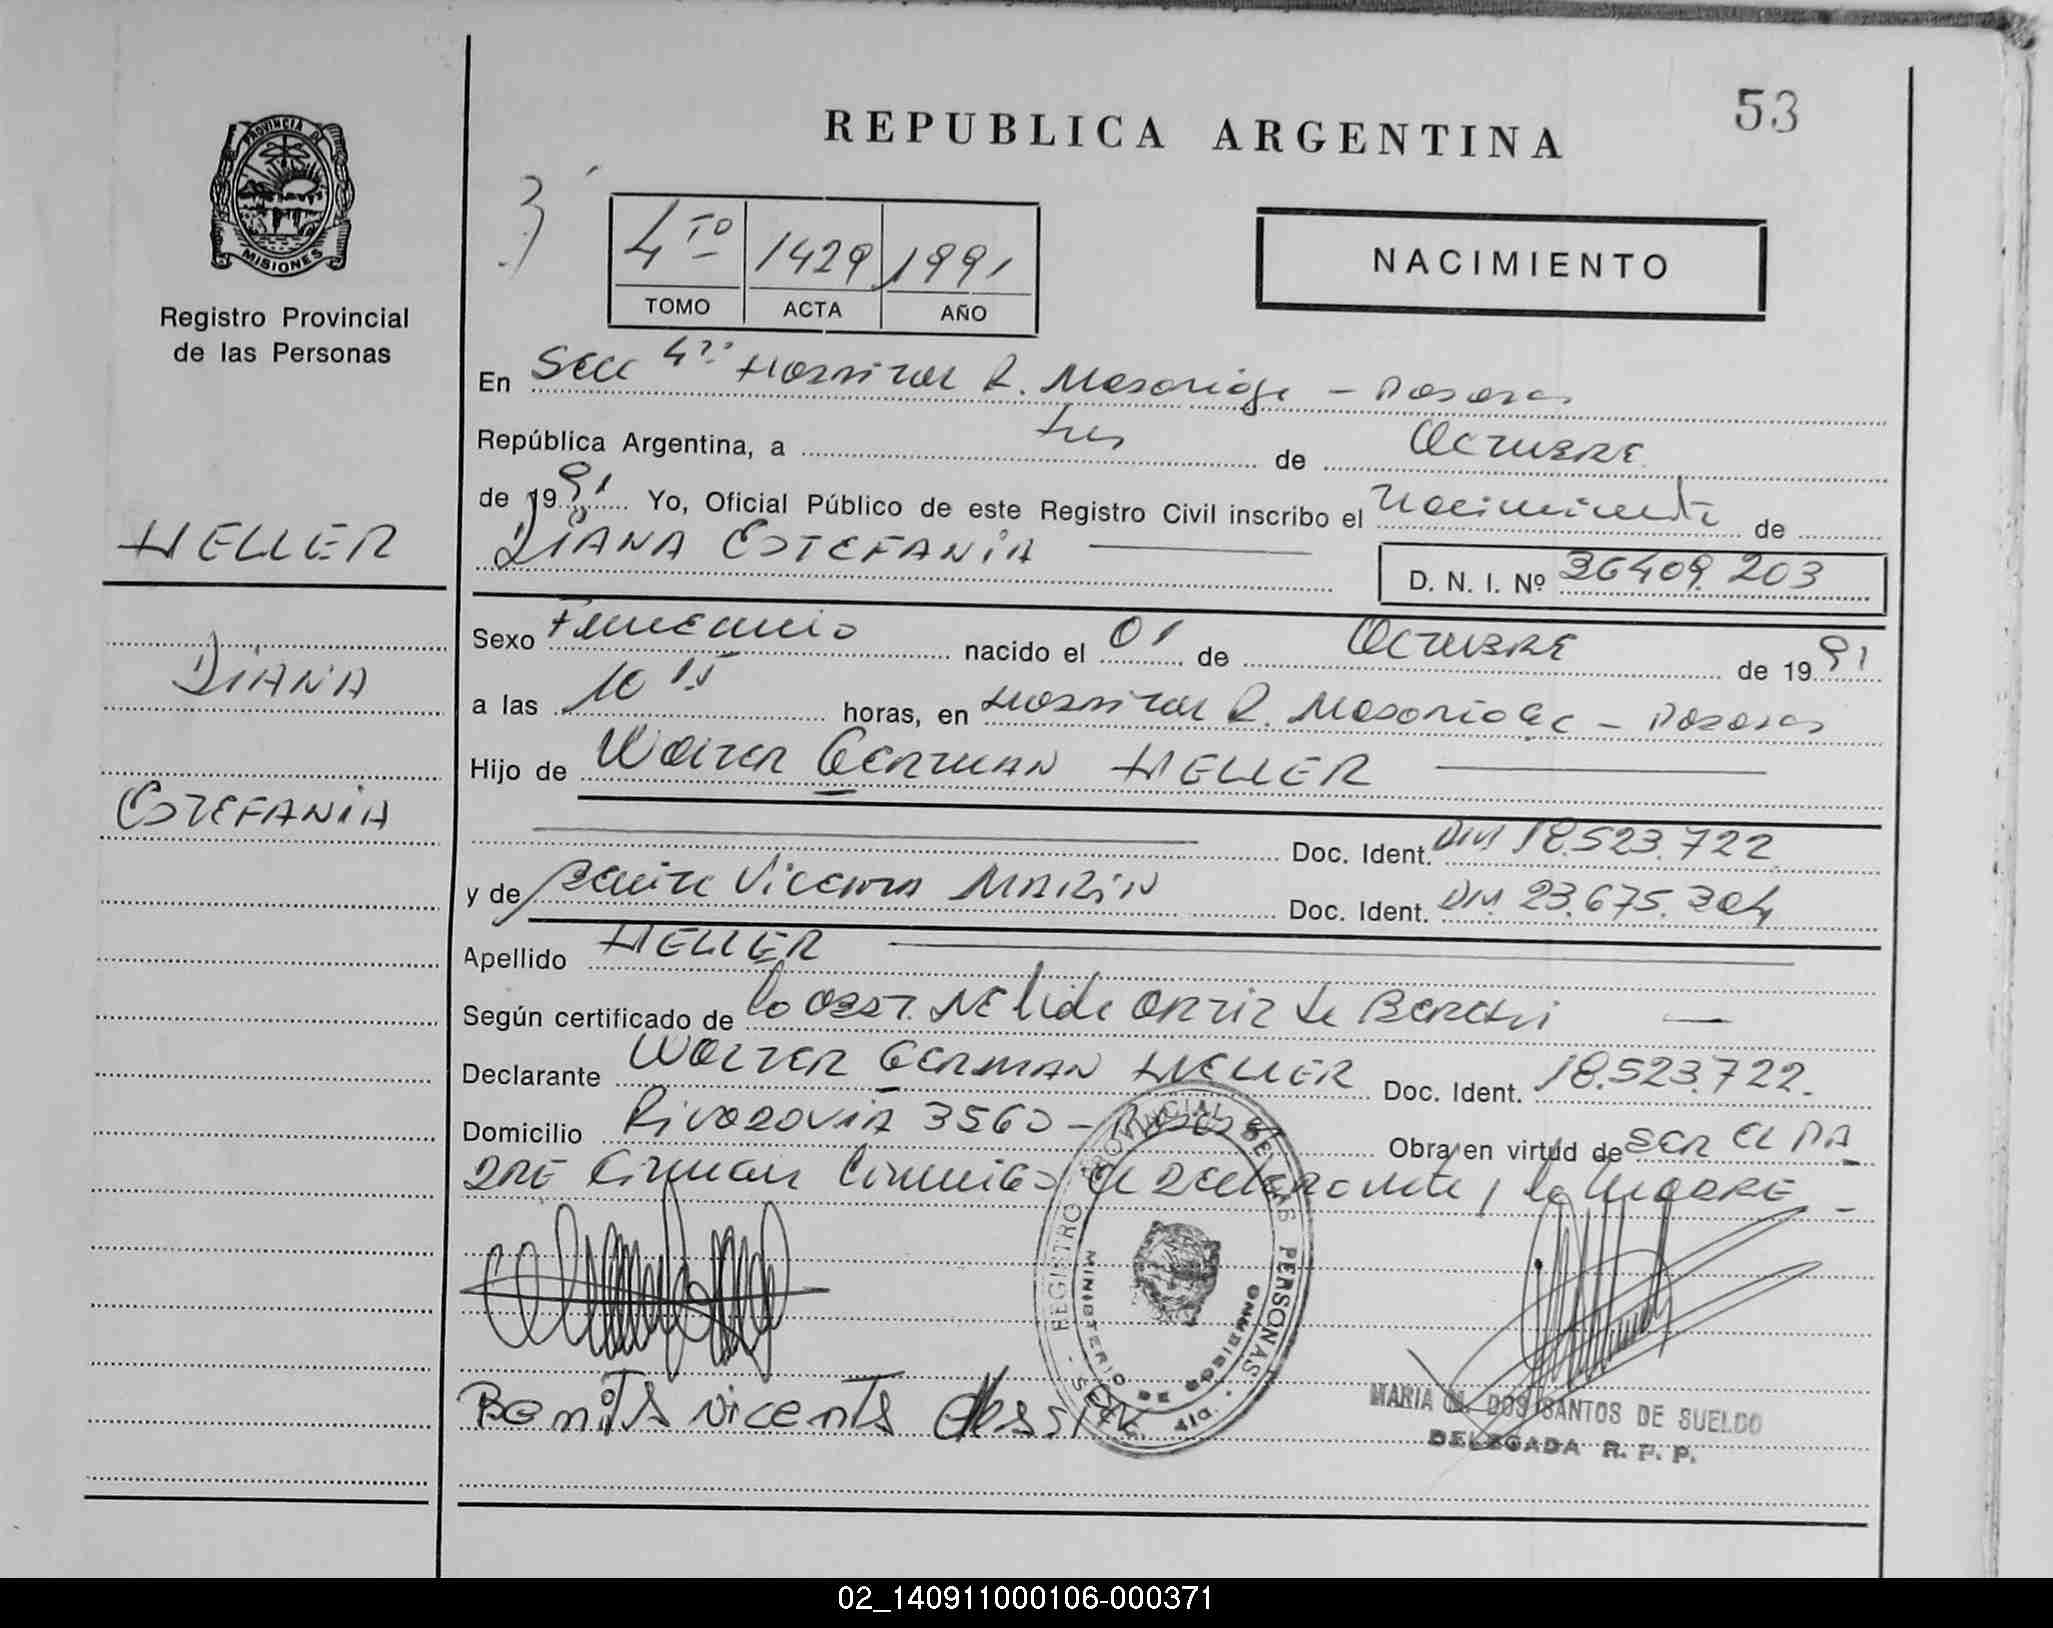 53
REPUBLICA ARGENTINA
PROVINCIA DE
MISIONES
Registro Provincial
de las Personas
3
4TO 1429 1991
TOMO ACTA AÑO
NACIMIENTO
En Secc 4ta Hospital R. Madariaga - Posadas
República Argentina, a tres de Octubre
de 1991 Yo, Oficial Público de este Registro Civil inscribo el nacimiento de
HELLER
DIANA ESTEFANIA
D. N. I. Nº 36409.203
Sexo Femenino nacido el 01 de Octubre de 1991
DIANA
a las 10 15 horas, en Hospital R. Madariaga - Posadas
Hijo de Walter German HELLER
ESTEFANIA
Doc. Ident. DNI 18.523.722
y de Benita Vicenta MARIN Doc. Ident. DNI. 23.675.304
Apellido HELLER
Según certificado de la Obst. Nelida Ortiz de
Declarante Walter German HELLER Doc. Ident. 18.523.722.
Domicilio Rivadavia 3560 - Posadas Obra en virtud de ser el pa
dre Firman conmigo el declarante y la madre -
REGISTRO PROVINCIAL DE LAS PERSONAS
MINISTERIO DE GOBIERNO
Benita Vicenta
MARIA M. DOS SANTOS DE SUELDO
DELEGADA R. P. P.
02_140911000106-000371